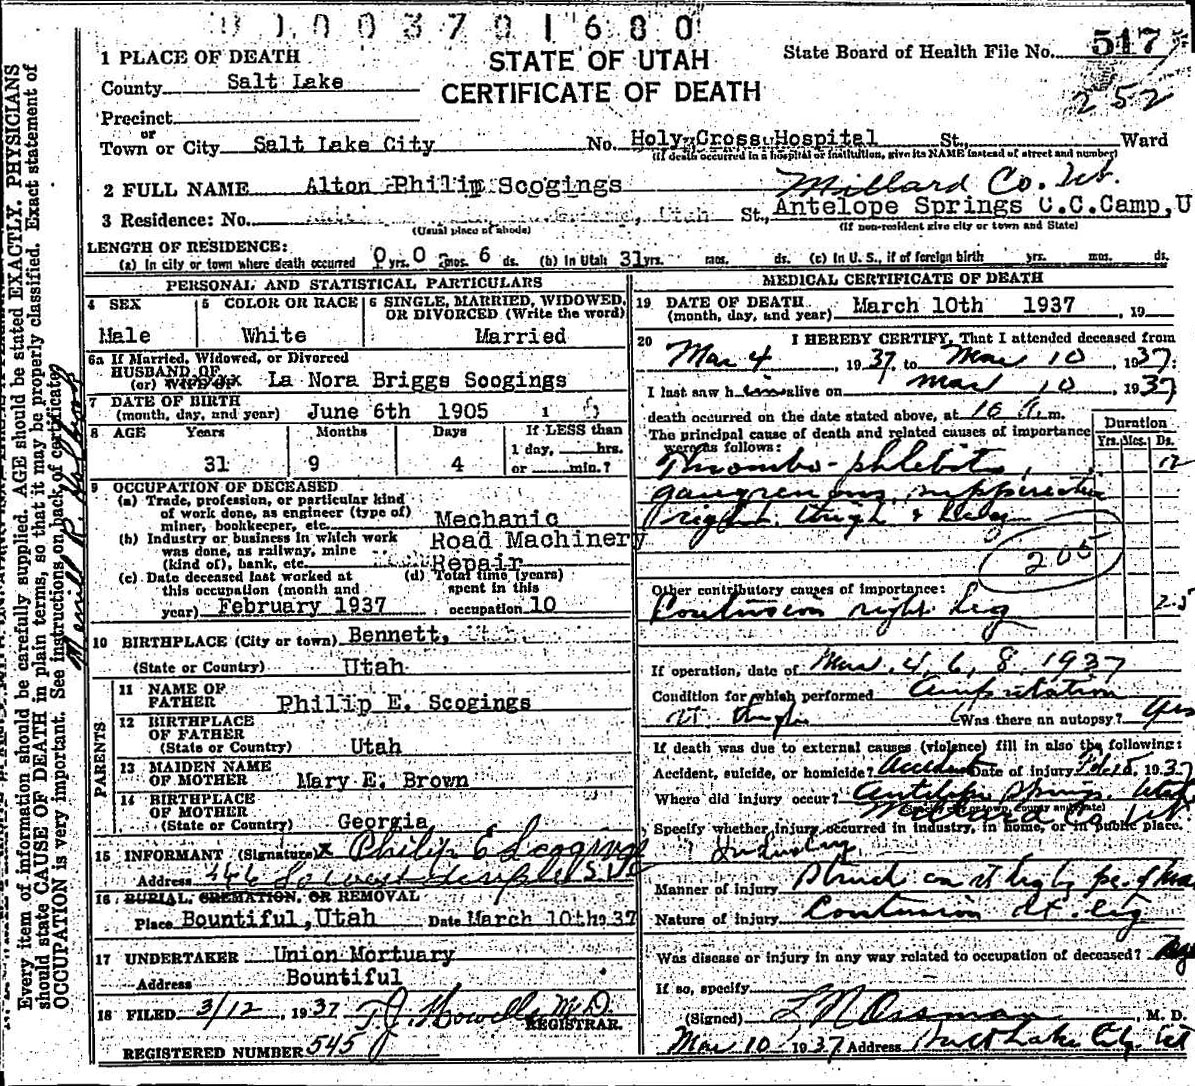 8 1 0 0 3 7 0 1 6 8 0
1 PLACE OF DEATH
STATE OF UTAH
CERTIFICATE OF DEATH
State Board of Health File No. 517
252
County Salt Lake
Precinct
or
Town or City Salt Lake City No. Holy Cross Hospital St., Ward
(If death occurred in a hospital or institution, give its NAME instead of street and number)
2 FULL NAME Alton Philip Scogings
Millard Co. Ut.
3 Residence: No. Utah St., Antelope Springs C.C.Camp, U
(Usual place of abode) (If non-resident give city or town and State)
LENGTH OF RESIDENCE:
(a) In city or town where death occurred 0 yrs. 0 mos. 6 ds. (b) In Utah 31 yrs. mos. ds. (c) In U. S., if of foreign birth yrs. mos. ds.
PERSONAL AND STATISTICAL PARTICULARS
4 SEX 5 COLOR OR RACE 6 SINGLE, MARRIED, WIDOWED, OR DIVORCED (Write the word)
Male White Married
6a If Married, Widowed, or Divorced
HUSBAND OF
(or) WIFE OF La Nora Briggs Scogings
7 DATE OF BIRTH
(month, day, and year) June 6th 1905
8 AGE Years Months Days If LESS than
1 day, hrs.
31 9 4 or min.?
9 OCCUPATION OF DECEASED
(a) Trade, profession, or particular kind
of work done, as engineer (type of)
miner, bookkeeper, etc. Mechanic
(b) Industry or business in which work Road Machinery
was done, as railway, mine
(kind of), bank, etc. Repair
(c) Date deceased last worked at (d) Total time (years)
this occupation (month and spent in this
year) February 1937 occupation 10
10 BIRTHPLACE (City or town) Bennett,
(State or Country) Utah
PARENTS
11 NAME OF
FATHER Philip E. Scogings
12 BIRTHPLACE
OF FATHER
(State or Country) Utah
13 MAIDEN NAME
OF MOTHER Mary E. Brown
14 BIRTHPLACE
OF MOTHER
(State or Country) Georgia
15 INFORMANT (Signature) x Philip E Scogings
Address
16 BURIAL, CREMATION, OR REMOVAL
Place Bountiful, Utah Date March 10th 37
17 UNDERTAKER Union Mortuary
Address Bountiful
18 FILED 3/12, 1937 T.J. Howells M.D.
REGISTRAR.
REGISTERED NUMBER 545
MEDICAL CERTIFICATE OF DEATH
19 DATE OF DEATH
(month, day, and year) March 10th 1937, 19
20 I HEREBY CERTIFY, That I attended deceased from
Mar 4, 1937, to Mar 10, 1937.
I last saw him alive on Mar 10, 1937
death occurred on the date stated above, at 10 a.m.
The principal cause of death and related causes of importance
were as follows:
Duration
Yrs. Mos. Ds.
Thrombo-phlebitis, 12
gangrenous, suppurative
right thigh & leg
205
Other contributory causes of importance:
Contusion right leg 25
If operation, date of Mar. 4, 6, 8, 1937
Condition for which performed Amputation
rt. thigh Was there an autopsy? yes
If death was due to external causes (violence) fill in also the following:
Accident, suicide, or homicide? Accident Date of injury Feb 15, 1937
Where did injury occur? Antelope Springs, Utah
(Specify city or town, county and State)
Millard Co. Ut.
Specify whether injury occurred in industry, in home, or in public place.
Industry
Manner of injury Struck on rt leg by pc. of
Nature of injury Contusion rt. leg
Was disease or injury in any way related to occupation of deceased? yes
If so, specify
(Signed) L N Ossman, M. D.
Mar 10 1937 Address Salt Lake City Ut
Every item of information should be carefully supplied. AGE should be stated EXACTLY. PHYSICIANS
should state CAUSE OF DEATH in plain terms, so that it may be properly classified. Exact statement of
OCCUPATION is very important. See instructions on back of certificate.